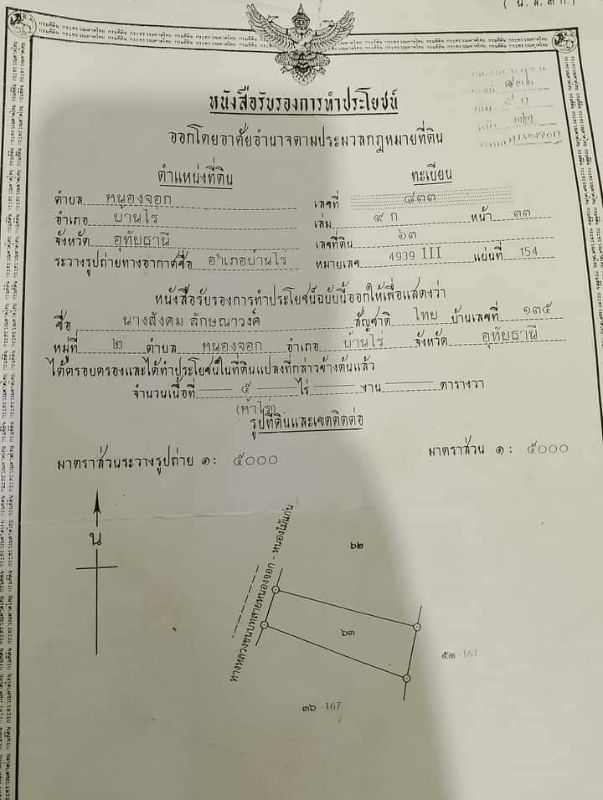 ( น.ส.๓ ก.)
หนังสือรับรองการทำประโยชน์
ออกโดยอาศัยอำนาจตามประมวลกฎหมายที่ดิน
ตำแหน่งที่ดิน
ทะเบียน
ตำบล หนองจอก
เลขที่ ๘๓๓
อำเภอ บ้านไร่
เล่ม ๙ ก หน้า ๓๓
จังหวัด อุทัยธานี
เลขที่ดิน ๖๓
ระวางรูปถ่ายทางอากาศชื่อ อำเภอบ้านไร่
หมายเลข 4939 III แผ่นที่ 154
หนังสือรับรองการทำประโยชน์ฉบับนี้ออกให้เพื่อแสดงว่า
ชื่อ นางสังคม ลักษณาวงค์ สัญชาติ ไทย บ้านเลขที่ ๑๓๕
หมู่ที่ ๒ ตำบล หนองจอก อำเภอ บ้านไร่ จังหวัด อุทัยธานี
ได้ครอบครองและได้ทำประโยชน์ในที่ดินแปลงที่กล่าวข้างต้นแล้ว
จำนวนเนื้อที่ ๕ ไร่ งาน ตารางวา
(ห้าไร่)
รูปที่ดินและเขตติดต่อ
มาตราส่วนระวางรูปถ่าย ๑ : ๕๐๐๐
มาตราส่วน ๑ : ๕๐๐๐
น
ทางหลวงชนบทสายหนองจอก - หนองไม้แก่น
๖๒
๖๓
๕๑ -167
๓๖ -167